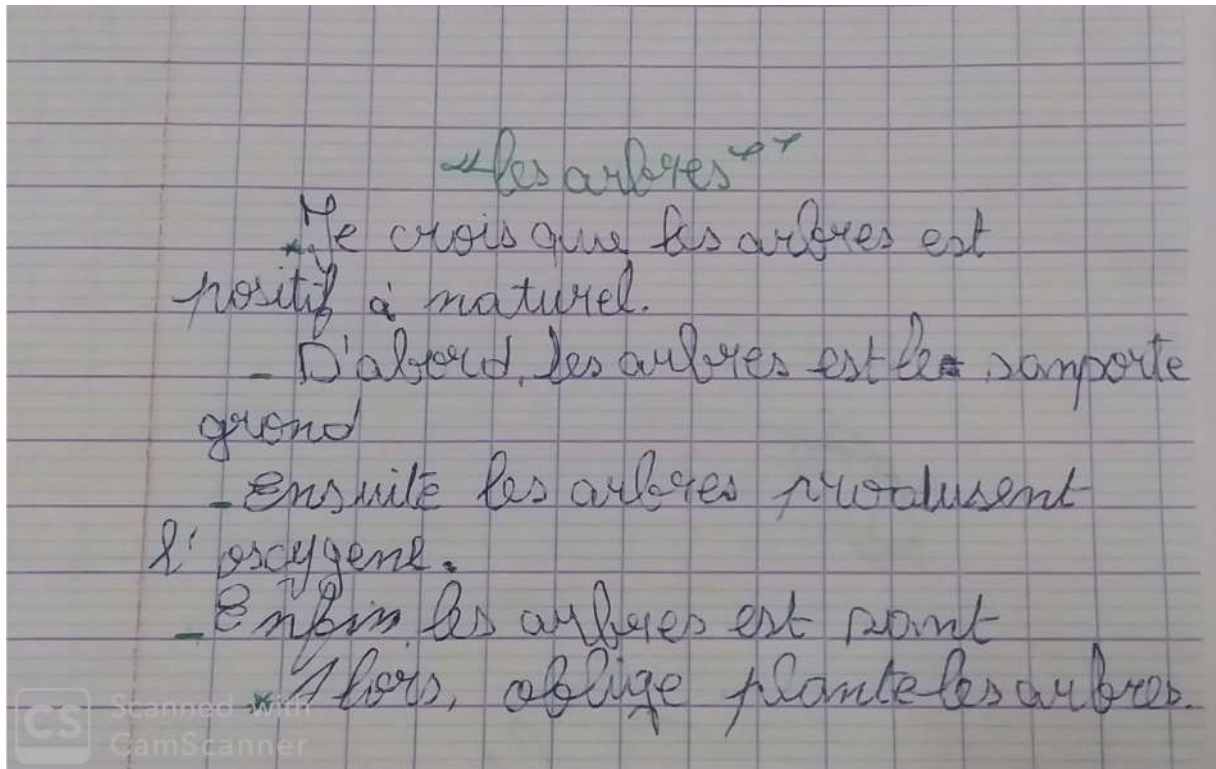 "les arbres"
* Je crois que les arbres est
positif à naturel.
- D'abord, les arbres est le samporte
grond
- Ensuite les arbres produsent
l'oscygene.
- Enfin les arbres est sont
* Alors, oblige plante les arbres.
CS Scanned with
CamScanner